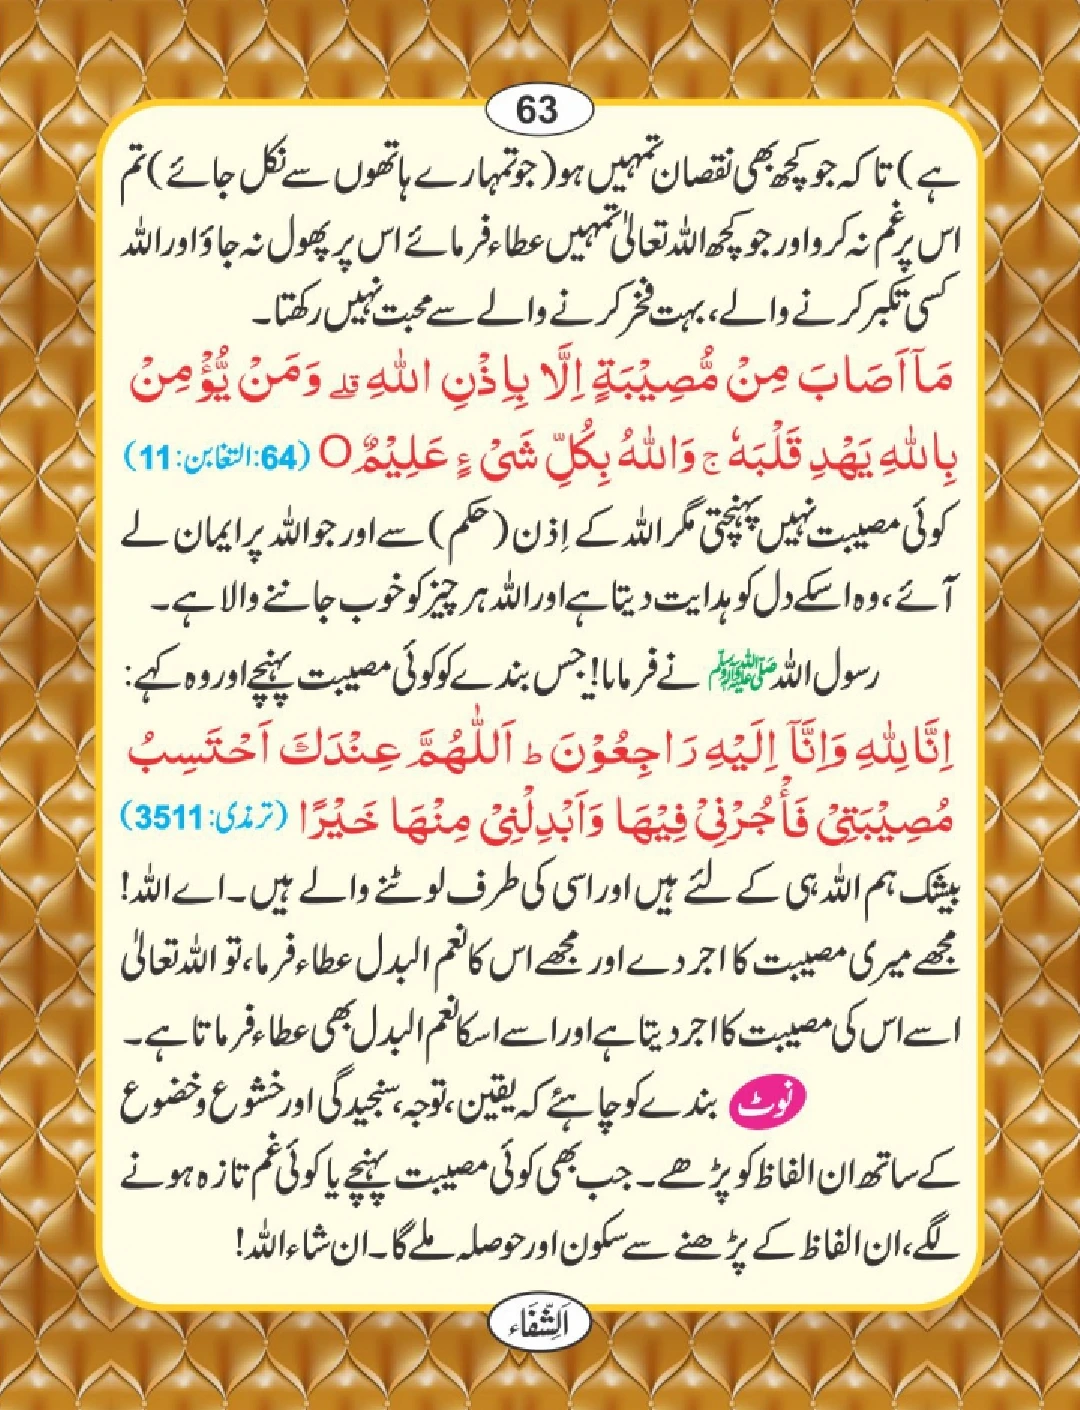 63
ہے) تاکہ جو کچھ بھی نقصان تمہیں ہو (جو تمہارے ہاتھوں سے نکل جائے) تم
اس پر غم نہ کرو اور جو کچھ اللہ تعالیٰ تمہیں عطاء فرمائے اس پر پھول نہ جاؤ اور اللہ
کسی تکبر کرنے والے، بہت فخر کرنے والے سے محبت نہیں رکھتا۔
مَآ اَصَابَ مِنْ مُّصِيْبَةٍ اِلَّا بِاِذْنِ اللهِ ۗ وَمَنْ يُّؤْمِنْ
بِاللهِ يَهْدِ قَلْبَهٗ ج وَاللهُ بِكُلِّ شَیْ ءٍ عَلِيْمٌ O (64:التغابن:11)
کوئی مصیبت نہیں پہنچتی مگر اللہ کے اِذن (حکم) سے اور جو اللہ پر ایمان لے
آئے، وہ اسکے دل کو ہدایت دیتا ہے اور اللہ ہر چیز کو خوب جاننے والا ہے۔
رسول اللہ ﷺ نے فرمایا! جس بندے کو کوئی مصیبت پہنچے اور وہ کہے:
اِنَّا لِلهِ وَاِنَّآ اِلَيْهِ رَاجِعُوْنَ ط اَللّٰهُمَّ عِنْدَكَ اَحْتَسِبُ
مُصِيْبَتِیْ فَأْجُرْنِیْ فِيْهَا وَاَبْدِلْنِیْ مِنْهَا خَيْرًا (ترمذی:3511)
بیشک ہم اللہ ہی کے لئے ہیں اور اسی کی طرف لوٹنے والے ہیں۔ اے اللہ!
مجھے میری مصیبت کا اجر دے اور مجھے اس کا نعم البدل عطاء فرما، تو اللہ تعالیٰ
اسے اس کی مصیبت کا اجر دیتا ہے اور اسے اسکا نعم البدل بھی عطاء فرماتا ہے۔
نوٹ بندے کو چاہئے کہ یقین، توجہ، سنجیدگی اور خشوع و خضوع
کے ساتھ ان الفاظ کو پڑھے۔ جب بھی کوئی مصیبت پہنچے یا کوئی غم تازہ ہونے
لگے، ان الفاظ کے پڑھنے سے سکون اور حوصلہ ملے گا۔ ان شاء اللہ!
اَلشِّفَاء